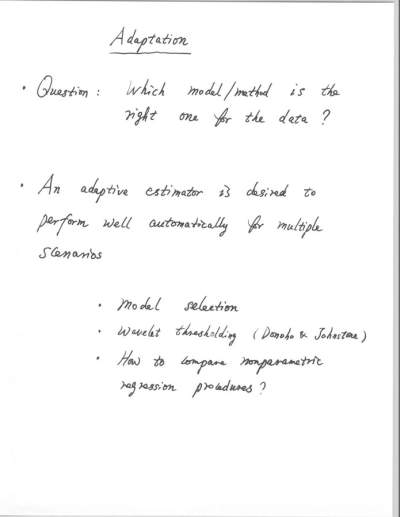 Adaptation
• Question: Which model/method is the
right one for the data?
• An adaptive estimator is desired to
perform well automatically for multiple
scenarios
• Model selection
• Wavelet thresholding (Donoho & Johnstone)
• How to compare nonparametric
regression procedures?